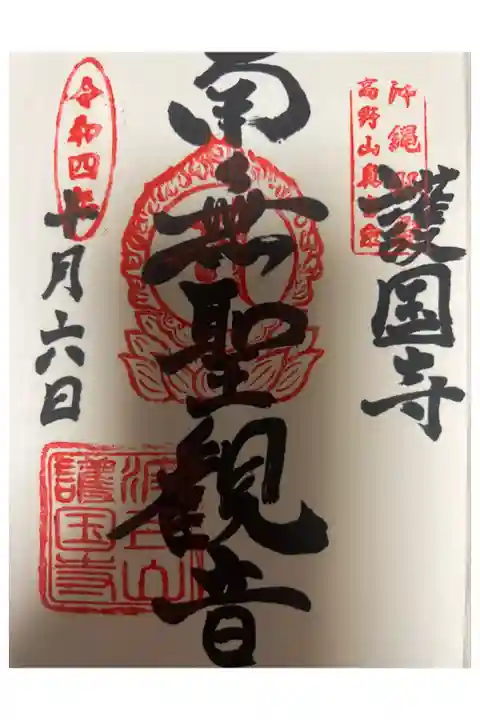 沖縄
高野山真言宗
護国寺
南無聖観音
令和四年
十月六日
波上山
護国寺